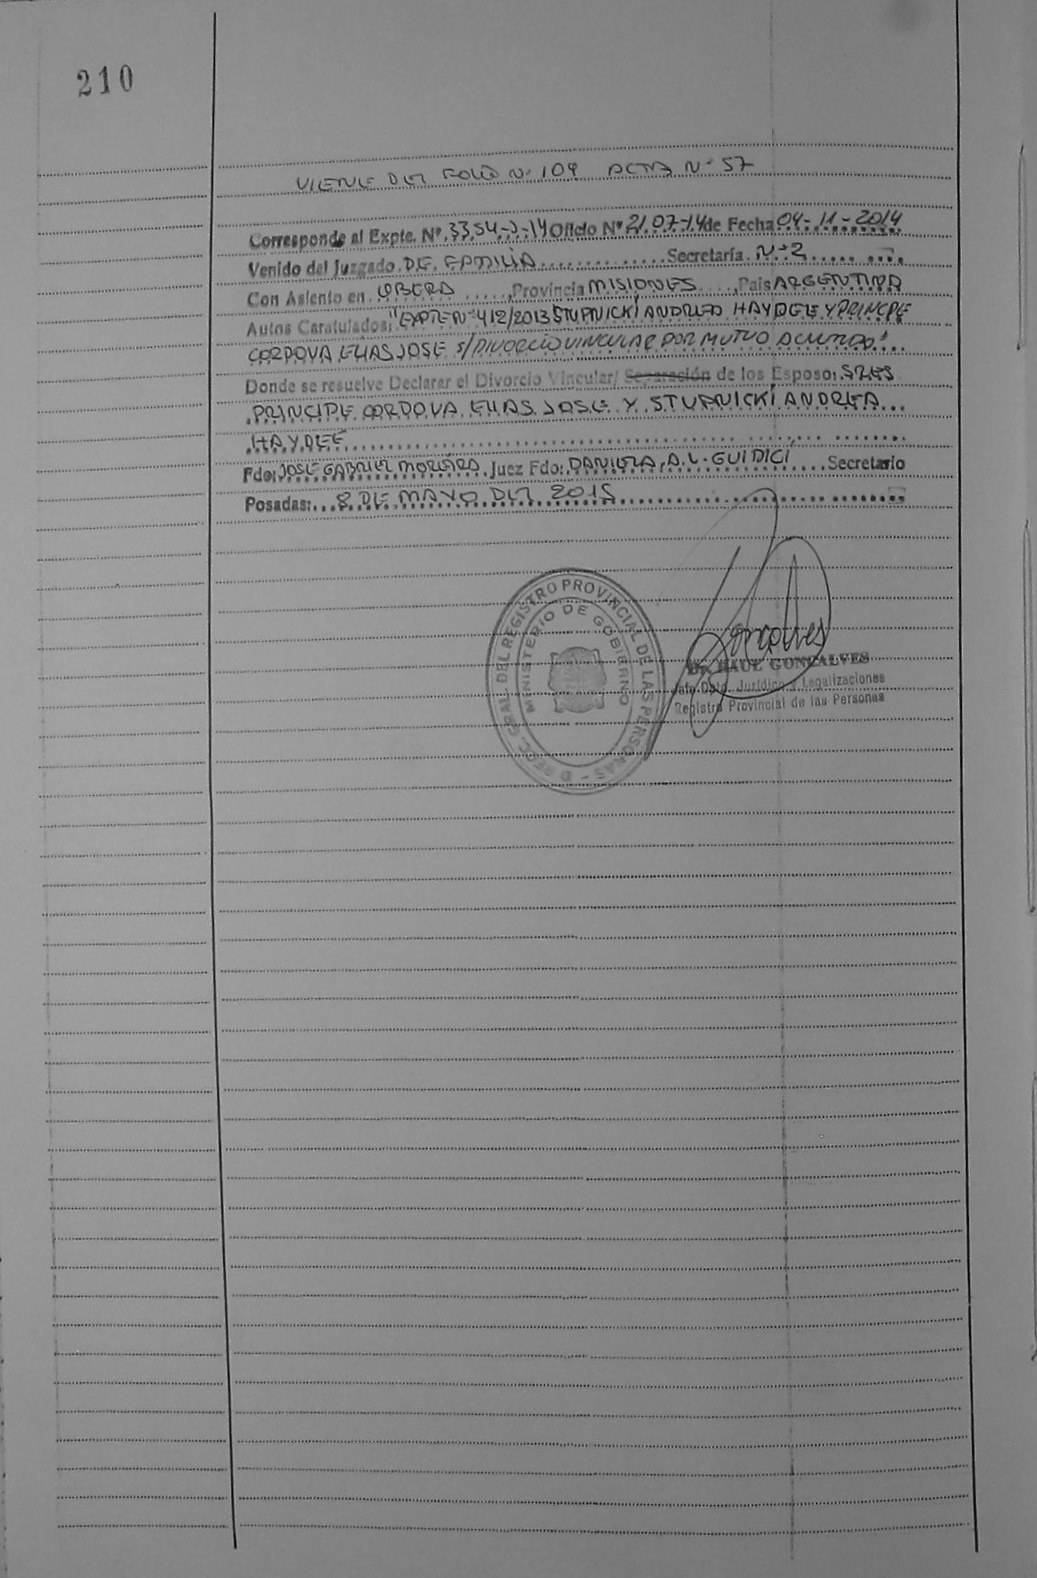 210
VIENE DEL FOLIO N° 109 ACTA N° 57
Corresponde al Expte. Nº 3354-J-14 Oficio Nº 2107-14 de Fecha 04-11-2014
Venido del Juzgado DE FAMILIA Secretaría N° 2
Con Asiento en OBERA Provincia MISIONES País ARGENTINA
Autos Caratulados: "EXPTE N° 412/2013 STUPNICKÍ ANDREA HAYDEE Y PRINCIPE
CORDOVA ELIAS JOSE S/ DIVORCIO VINCULAR POR MUTUO ACUERDO"
Donde se resuelve Declarar el Divorcio Vincular/ Separación de los Esposo: SRES
PRINCIPE CORDOVA ELIAS JOSE Y STUPNICKÍ ANDREA
HAYDEÉ
Fdo: JOSE GABRIEL MOREIRA Juez Fdo: DANIELA A. L. GUIDICÍ Secretario
Posadas: 8 DE MAYO DEL 2015
DEL REGISTRO PROVINCIAL DE LAS PERSONAS
MINISTERIO DE GOBIERNO
Gonçalves
Dr. RAUL GONCALVES
Jefe Dpto. Jurídico y Legalizaciones
Registro Provincial de las Personas